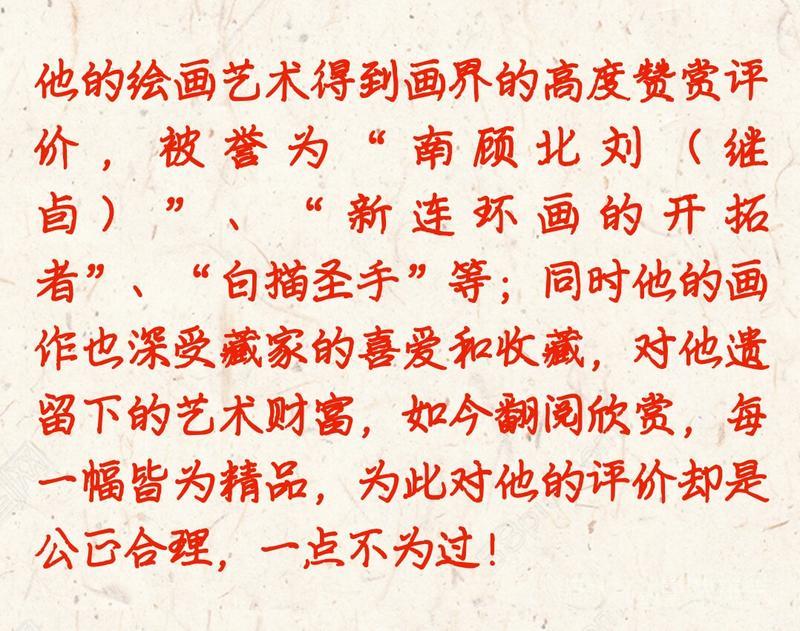 他的绘画艺术得到画界的高度赞赏评
价，被誉为“南顾北刘（继
卣）”、“新连环画的开拓
者”、“白描圣手”等；同时他的画
作也深受藏家的喜爱和收藏，对他遗
留下的艺术财富，如今翻阅欣赏，每
一幅皆为精品，为此对他的评价却是
公正合理，一点不为过！